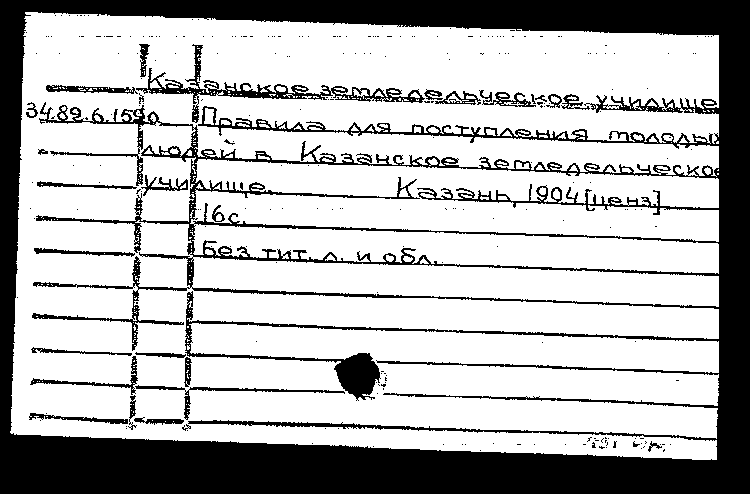 Казанское земледельческое училище
34.89.6.1590 Правила для поступления молодых
людей в Казанское земледельческое
училище. Казань, 1904 [ценз].
16с.
Без тит. л. и обл.